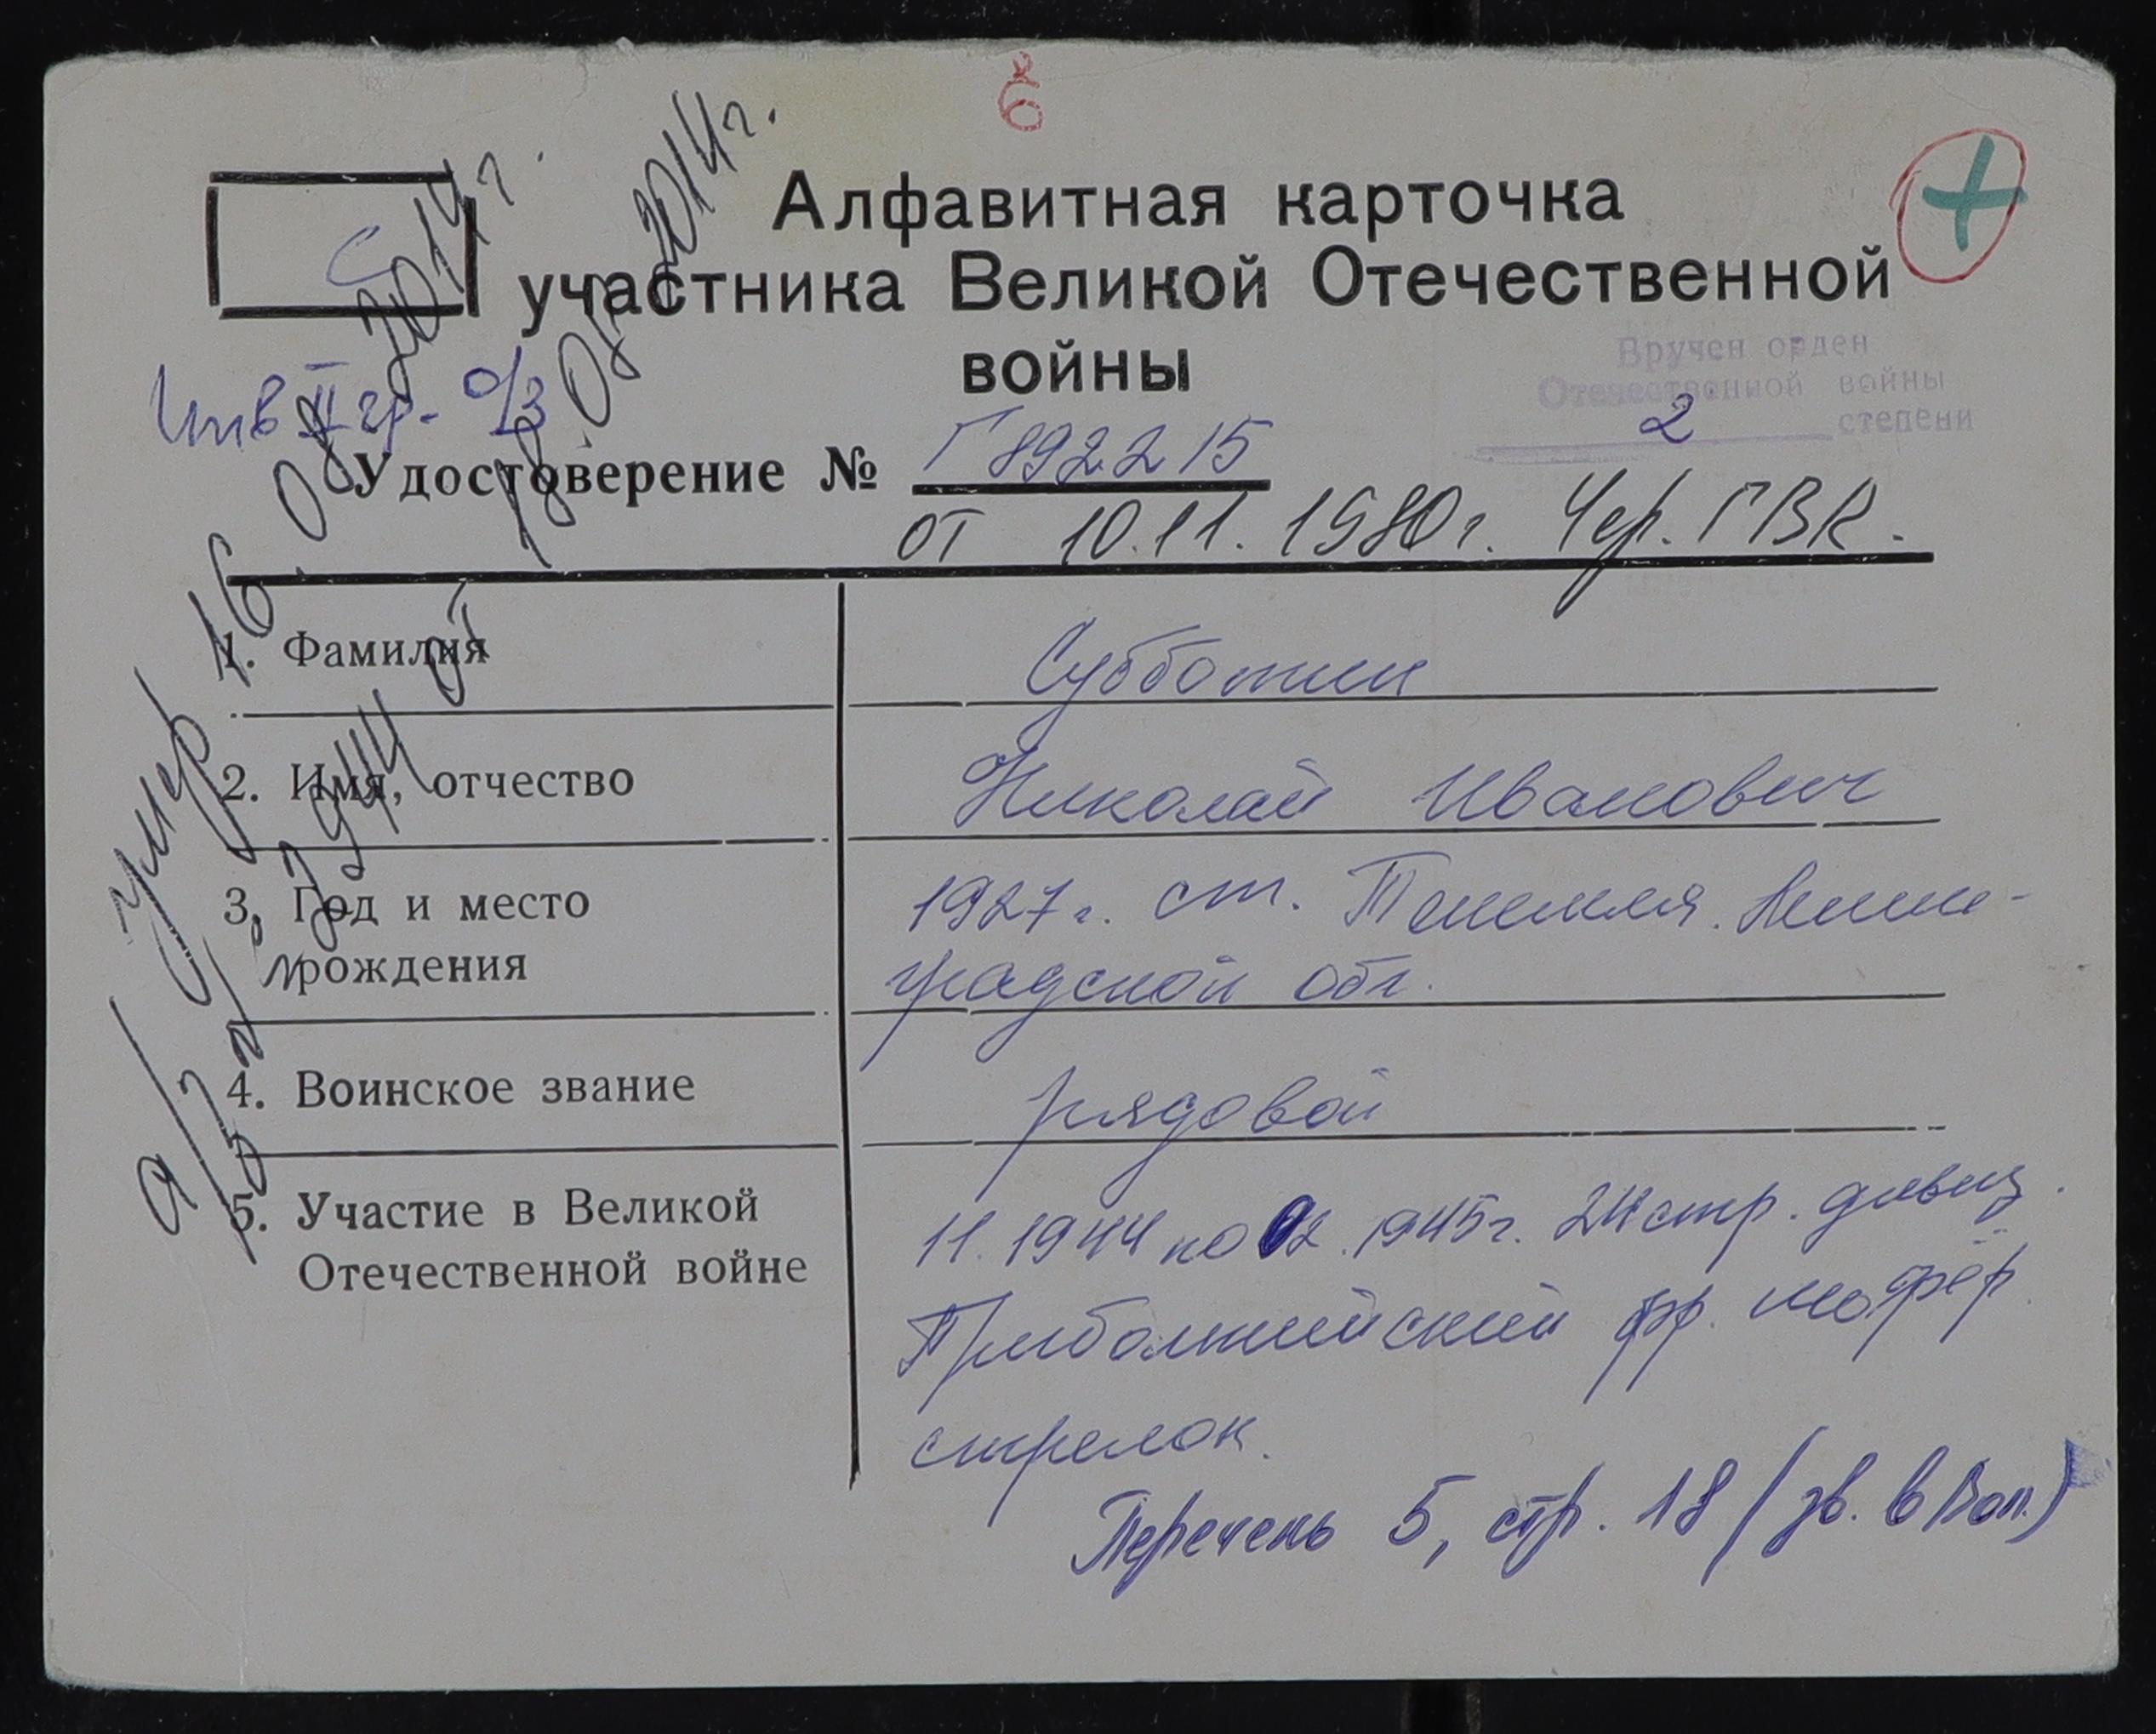 6
С
Алфавитная карточка
участника Великой Отечественной
войны
Вручен орден
Отечественной войны
2 степени
Инв II гр. о/з
Удостоверение № Г 892215
от 10.11.1980 г. Чер. ГВК.
1. Фамилия Субботин
2. Имя, отчество Николай Иванович
3. Год и место 1927 г. ст.
рождения градской обл.
4. Воинское звание рядовой
5. Участие в Великой 11.1944 по 02.1945 г. 24 стр. дивиз.
Отечественной войне Прибалтийский фр. шофёр
стрелок.
Перечень 5, стр. 18 (зв. в Воп.)
умер 16.08.2014 г.
а/з № 7944 от 18.08.2014 г.